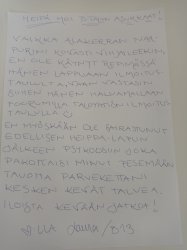 HEIPPÄ MOI TITAON ASUKKAAT!
VAIKKA ASAKERRAN NAA-
PURINI KOVASTI VIHJAILEEKIN,
EN OLE KÄYNYT REPIMÄSSÄ
HÄNEN LAPPUAAN ILMOITUS-
TAULULTA, VAAN VASTASIN
SIIHEN HÄNEN HALVAMALLAAN
FOORUMILLA TALOYHTIÖN ILMOITUS-
TAULULLA
EN MYÖSKÄÄN OLE SAIRASTUNUT
EDELLISEN HEIPPA-LAPUN
JÄLKEEN PSYKOOSIIN JOKA
PAKOTTAISI MINUT PESEMÄÄN
TAVOTTA PARVEKETTANI
KESKEN KEVÄT TALVEA.
ILOISTA KEVÄÄN JATKOA!
ULLA /B13